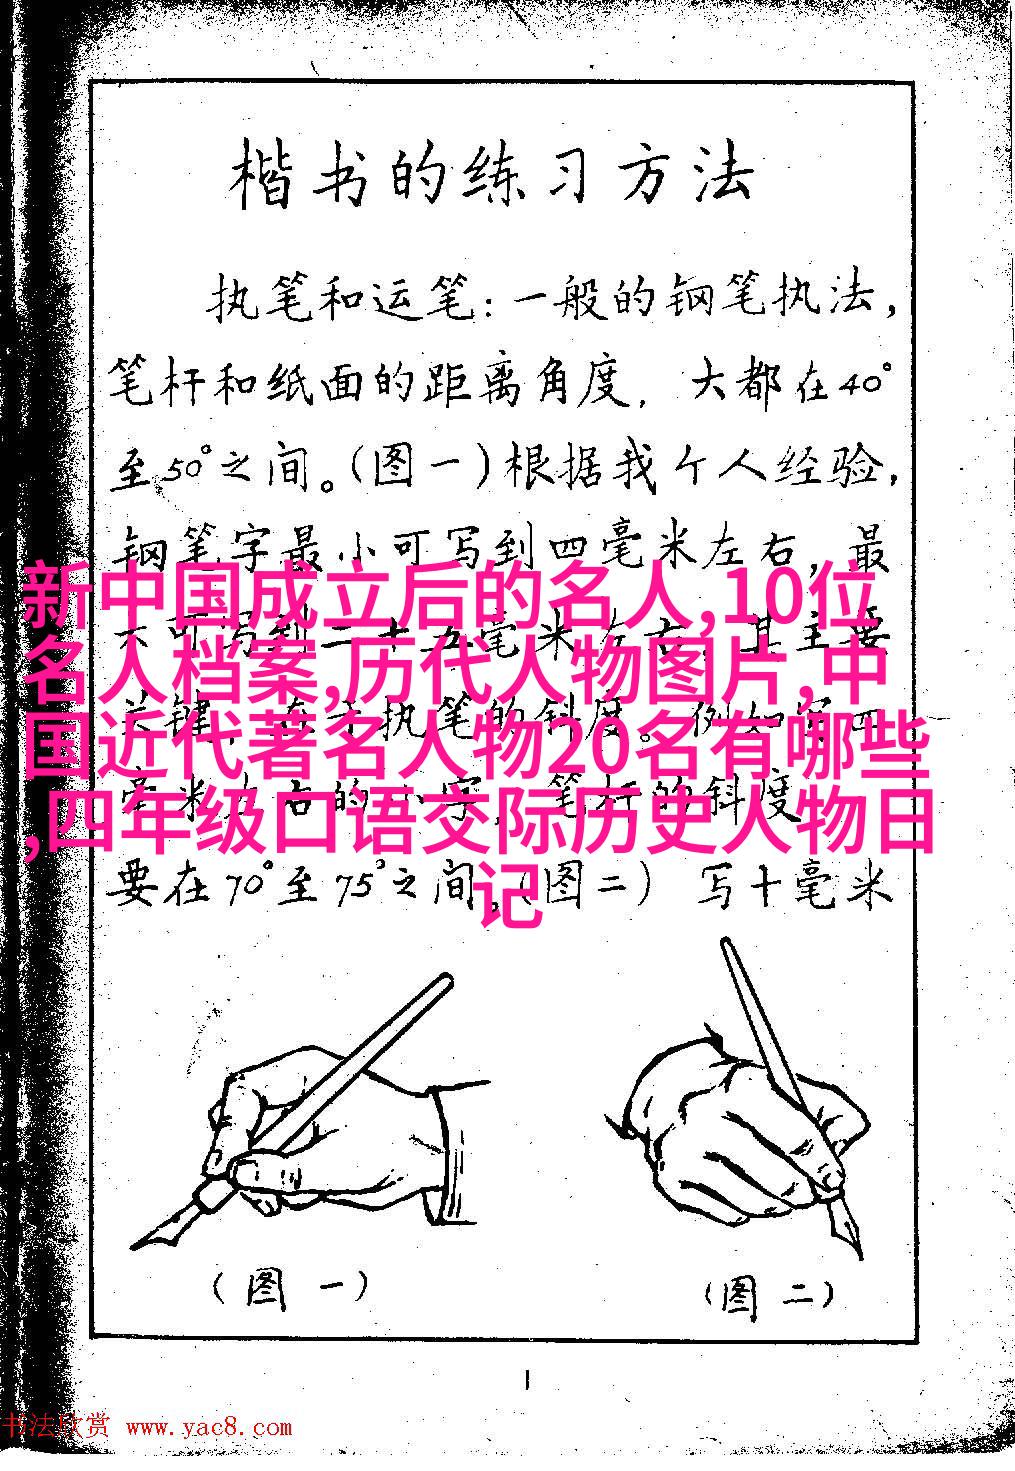 楷书的练习方法
执笔和运笔：一般的钢笔执法，
笔杆和纸面的距离角度，大都在40°
至50°之间。（图一）根据我个人经验，
钢笔字最小可写到四毫米左右，最
新中国成立后的名人,10位
名人档案,历代人物图片,中
国近代著名人物20名有哪些
,四年级口语交际历史人物日
记
要在70°至75°之间。（图二）写十毫米
（图一）
（图二）
1
书法欣赏 www.yac8.com